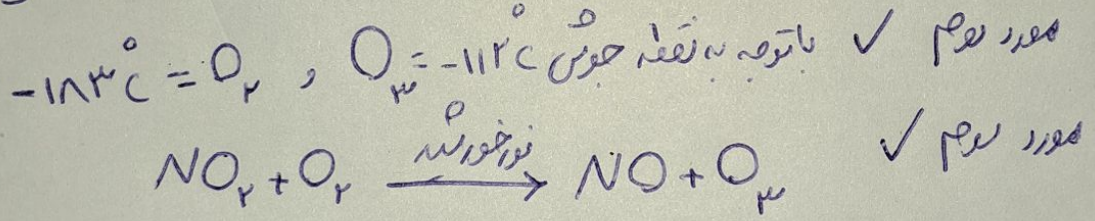 مورد دوم ✓ با توجه به نقطه جوش O₃ = -۱۱۲°C و O₂ = -۱۸۳°C
مورد سوم ✓ NO₂ + O₂ نور خورشید → NO + O₃